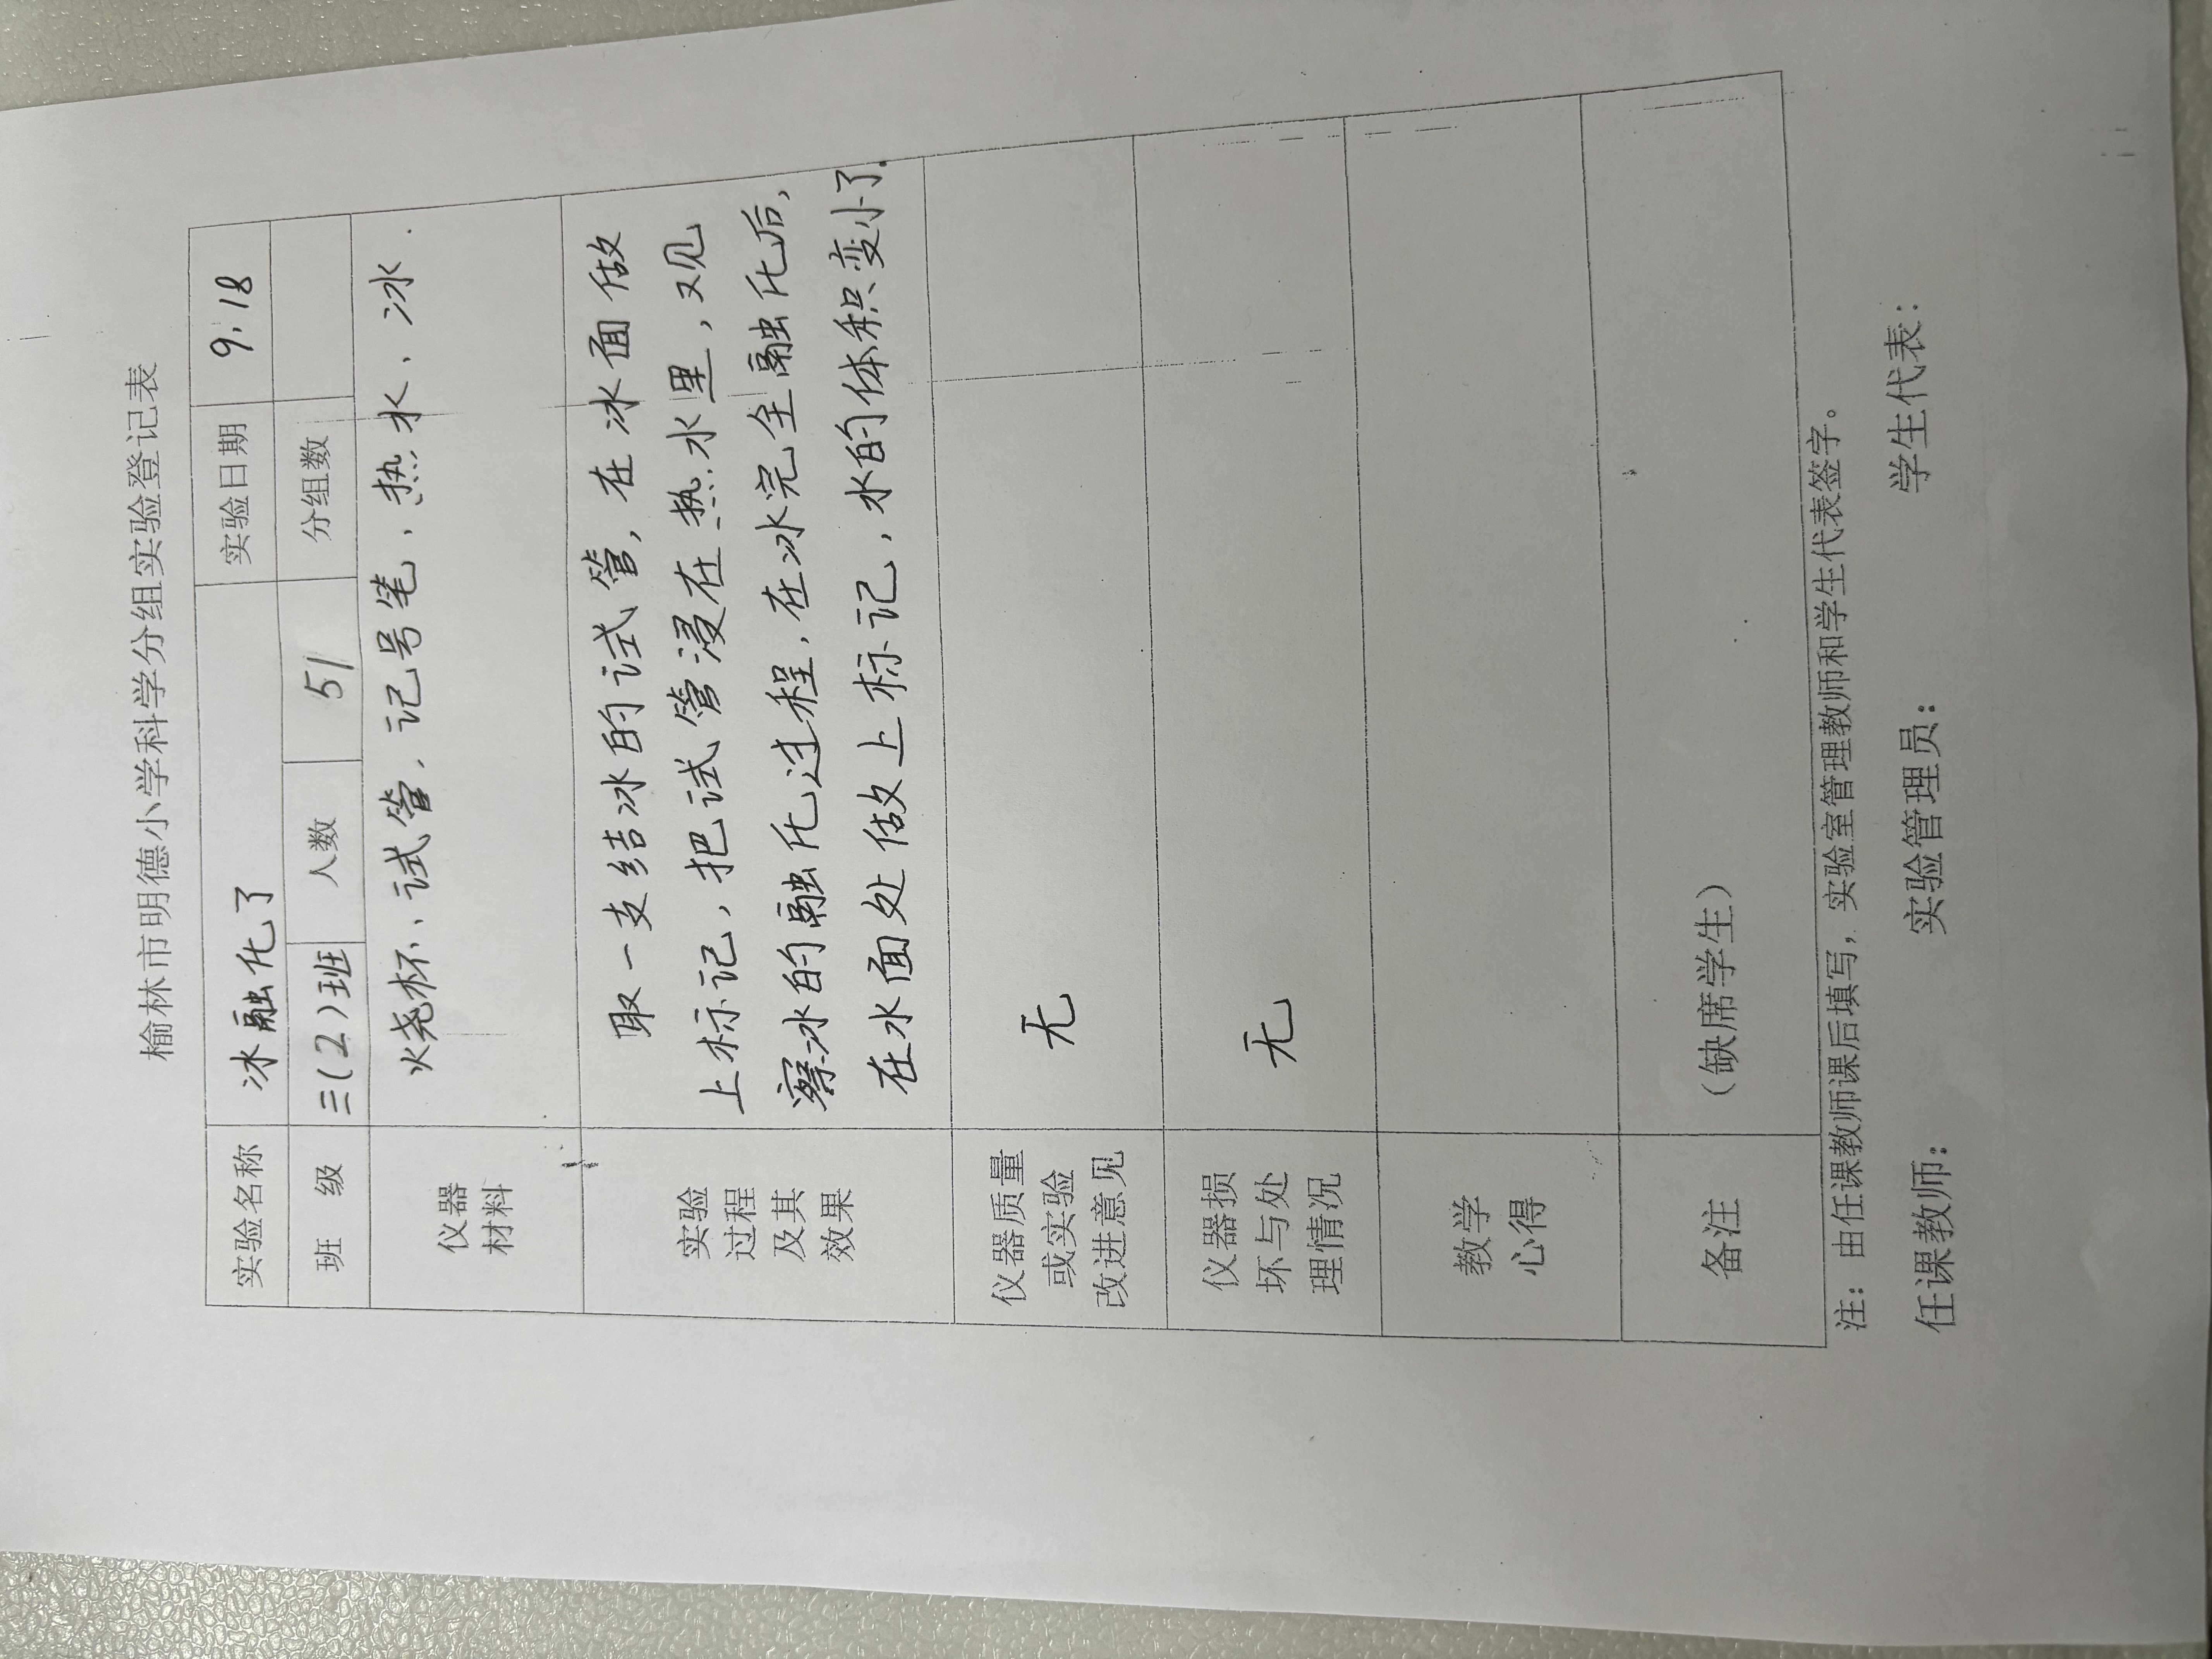 榆林市明德小学科学分组实验登记表
实验名称 冰融化了 实验日期 9.18
班 级 三(2)班 人数 51 分组数
仪器 材料 火烧杯、试管、记号笔、热水、冰.
实验 过程 及其 效果
取一支结冰的试管,在冰面做
上标记,把试管浸在热水里,观
察冰的融化过程,在冰完全融化后,
在水面处做上标记,水的体积变小了.
仪器质量 或实验 改进意见 无
仪器损 坏与处 理情况 无
教学 心得
备注 (缺席学生)
注:由任课教师课后填写,实验室管理教师和学生代表签字。
任课教师: 实验管理员: 学生代表: